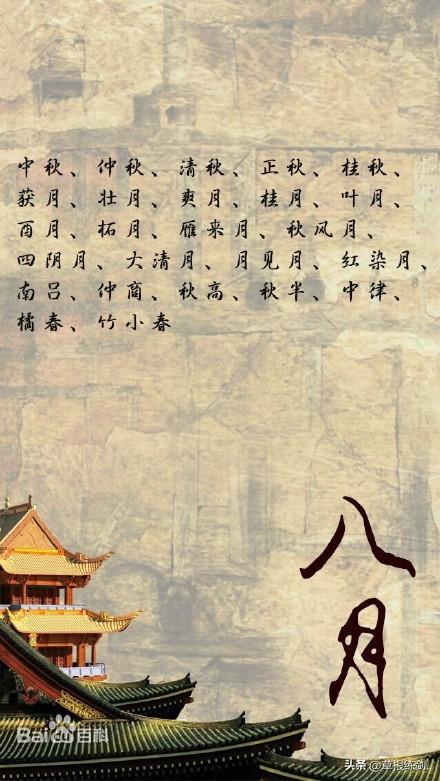 中秋、仲秋、清秋、正秋、桂秋、
获月、壮月、爽月、桂月、叶月、
酉月、柘月、雁来月、秋风月、
四阴月、大清月、月见月、红染月、
南吕、仲商、秋高、秋半、中律、
橘春、竹小春
八月
Bai百科
头条 @草根练剑